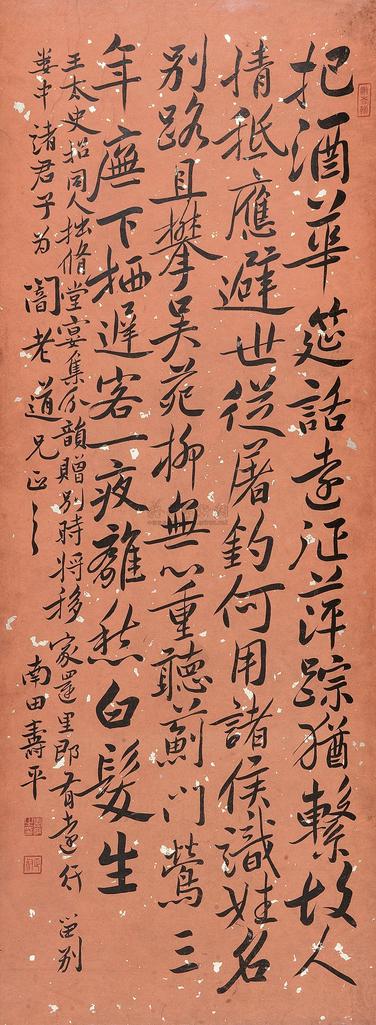 把酒華筵話遠征萍踪猶繫故人
情秖應避世從屠釣何用諸侯識姓名
別路且攀吴苑柳無心重聽薊門鶯三
年廡下栖遲客一夜離愁白髮生
王太史招同人拙脩堂宴集分韻贈別時将移家還里即有遠行留別
婁中諸君子为闇老道兄正之
南田壽平